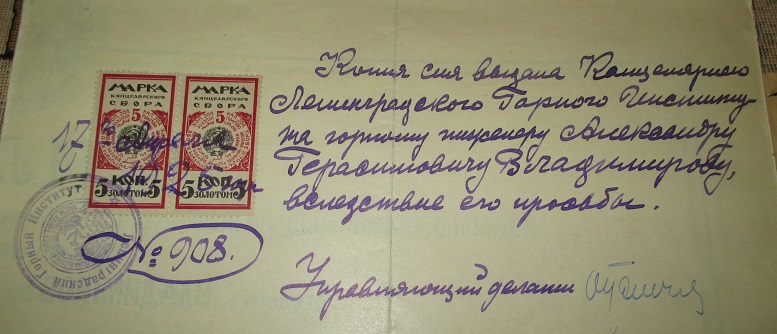 МАРКА
КАНЦЕЛЯРСКОГО
СБОРА
5
5 КОП. 5
ЗОЛОТОМ
МАРКА
КАНЦЕЛЯРСКОГО
СБОРА
5
5 КОП. 5
ЗОЛОТОМ
17
№ 908.
Ленинградский Горный Институт
Копия сия выдана Канцелярией
Ленинградского Горного Институ-
та горному инженеру Александру
Герасимовичу Владимирову,
вследствие его просьбы.
Управляющий делами